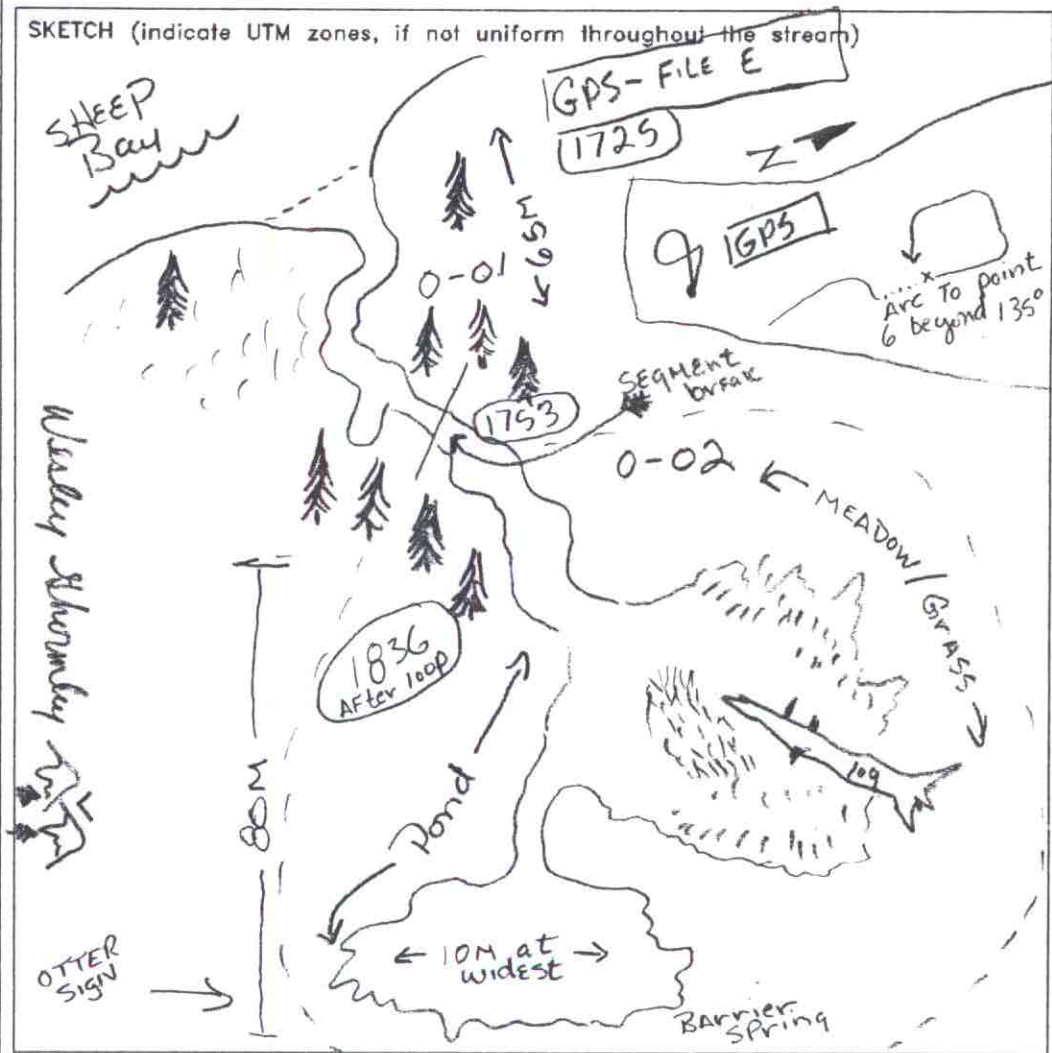 SKETCH (indicate UTM zones, if not uniform throughout the stream)
SHEEP
Bay
GPS-FILE E
1725
N
65M
GPS
Arc To point
6 beyond 135°
0-01
SEGMENT
break
1753
0-02
MEADOW/GrASS
Wesley Ghormley
1836
AFter loop
109
80M
Pond
10M at
widEST
OTTER
SIGN
BArrier
SPring